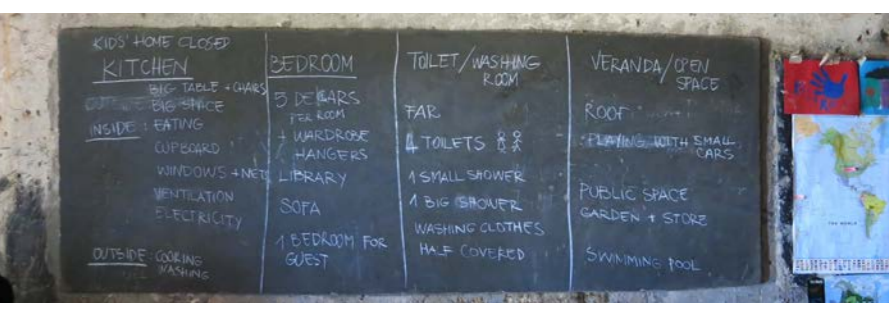 KIDS' HOME CLOSED
KITCHEN
BIG TABLE + CHAIRS
BIG SPACE
INSIDE : EATING
CUPBOARD
WINDOWS + NET
VENTILATION
ELECTRICITY
OUTSIDE : COOKING
WASHING
BEDROOM
5 DECKARS
PER ROOM
+ WARDROBE
HANGERS
LIBRARY
SOFA
1 BEDROOM FOR
GUEST
TOILET/WASHING
ROOM
FAR
4 TOILETS
1 SMALL SHOWER
1 BIG SHOWER
WASHING CLOTHES
HALF COVERED
VERANDA/OPEN
SPACE
ROOF
PLAYING WITH SMALL
CARS
PUBLIC SPACE
GARDEN + STORE
SWIMMING POOL
THE WORLD